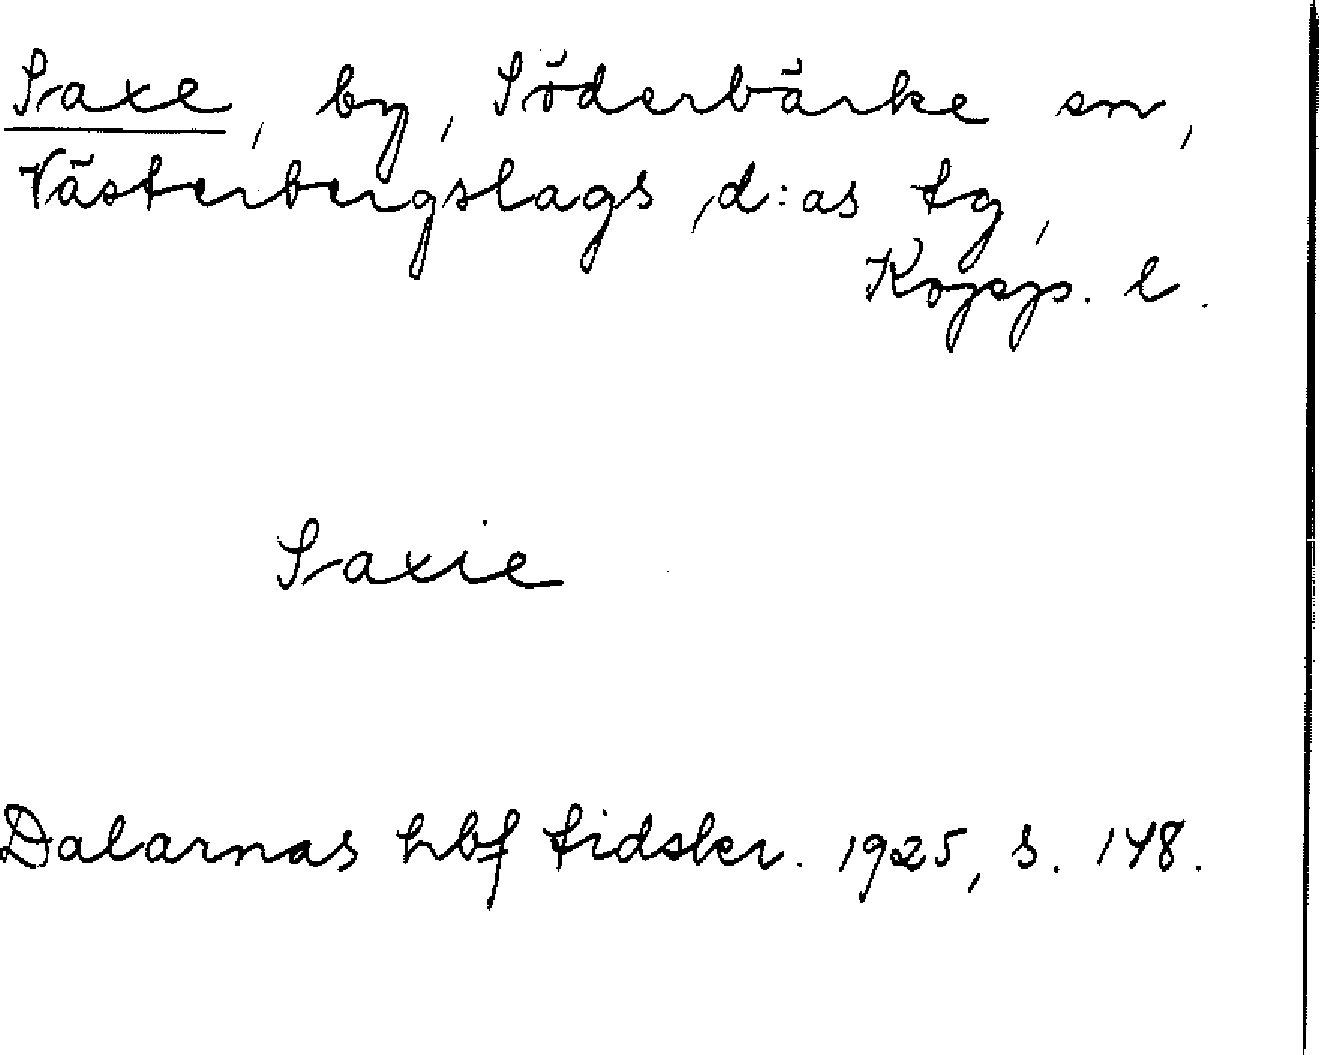 Saxe, by, Söderbärke sn,
Västerbergslags d:as tg,
Kopp. l.
Saxie
Dalarnas hbf tidskr. 1925, s. 148.